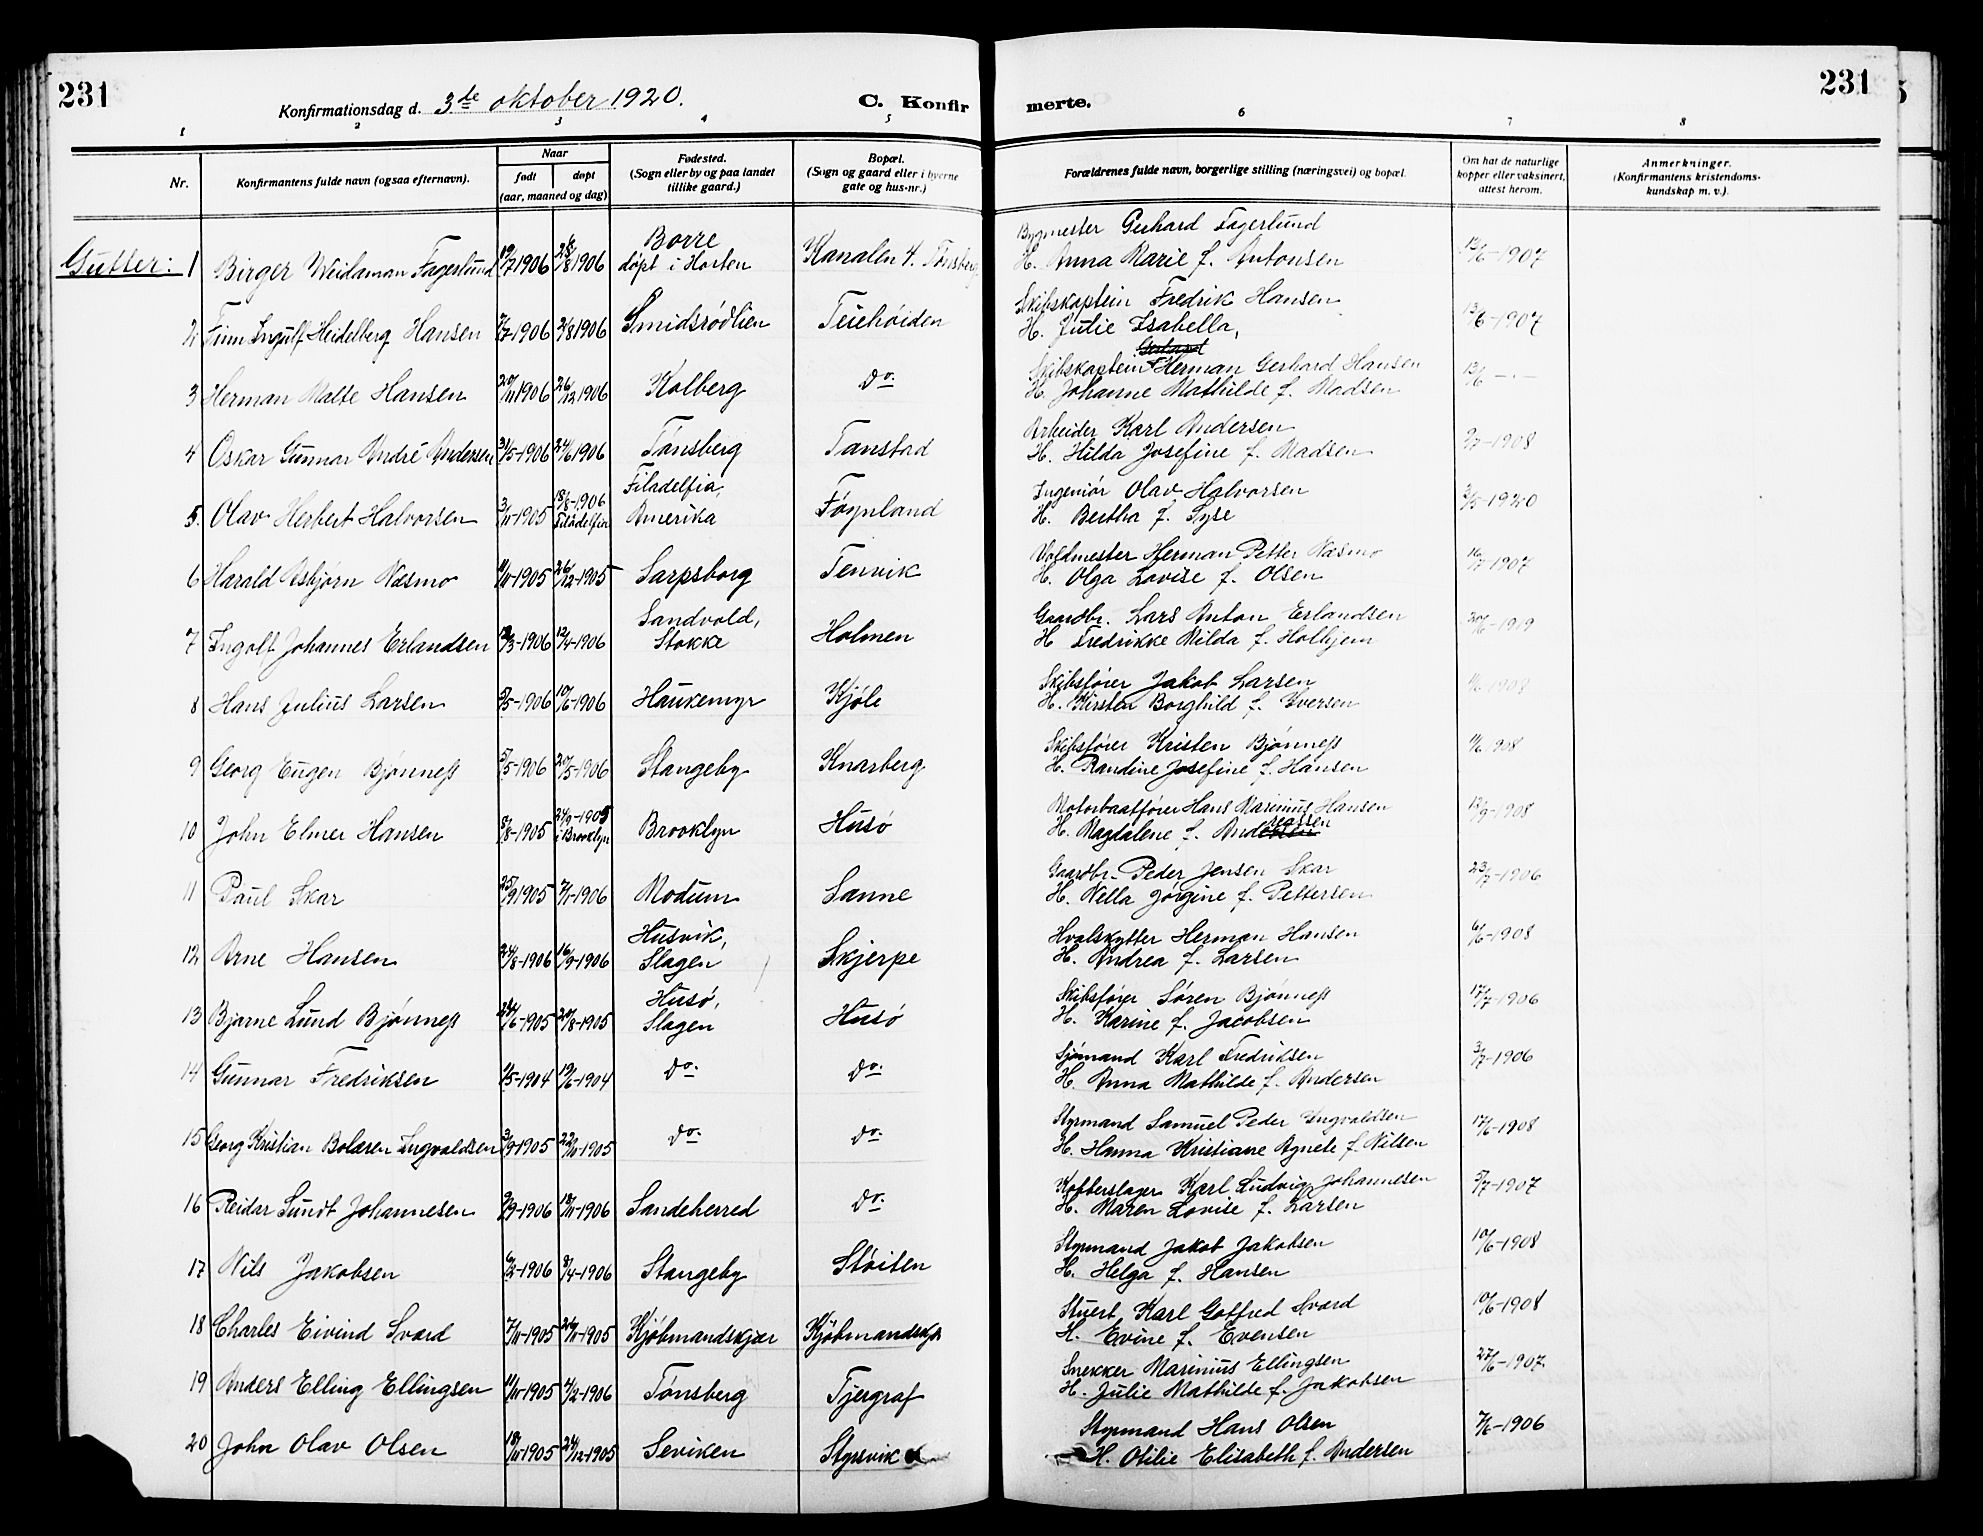 231
231
Konfirmationsdag d. 3de oktober 1920.
C. Konfir
merte.
1 2 3 4 5 6 7 8
Nr.
Konfirmantens fulde navn (ogsaa efternavn).
Naar
født
døpt
(aar, maaned og dag)
Fødested.
(Sogn eller by og paa landet
tillike gaard.)
Bopæl.
(Sogn og gaard eller i byerne
gate og hus-nr.)
Forældrenes fulde navn, borgerlige stilling (næringsvei) og bopæl.
Om hat de naturlige
kopper eller vaksinert,
attest herom.
Anmerkninger.
(Konfirmantens kristendoms-
kundskap m. v.)
Gutter:
1 Birger Weidaman Fagerlund 19/7 1906 26/8 1906 Borre
døpt i Horten Kanalen 4. Tønsberg
Bygmester Gerhard Fagerlund
H. Anna Marie f. Antonsen 13/6-1907
2 Finn Ingulf Heidelberg Hansen 1906 1906 Smidsrødlien Teiehøiden
Skibskaptein Fredrik Hansen
H. Julie Isabella, 13/6-1907
3 Herman Malte Hansen 20/11 1906 26/12 1906 Kolberg do.
Skibskaptein Herman Gerhard Hansen
H. Johanne Mathilde f. Madsen 13/6 -·-
4 Oskar Gunnar André Andersen 31/5-1906 24/6 1906 Tønsberg Tanstad
Arbeider Karl Andersen
H. Hilda Josefine f. Madsen 1908
5. Olav Herbert Halvorsen 3/11-1905 18/8-1906
Filadelfia Filadelfia,
Amerika Føynland
Ingeniør Olav Halvorsen
H. Bertha f. Syse 3/5-1920
6 Harald Asbjørn Næsmo 11/11-1905 26/12-1905 Sarpsborg Tenvik
Valdmester Herman Petter Næsmo
H. Olga Lovise f. Olsen 16/7-1907
7 Ingolf Johannes Erlandsen 1906 12/4-1906 Sandvold,
Stokke Holmen
Gaardbr. Lars Anton Erlandsen
H Fredrikke Milda f. Holhjem 20/6-1919
8 Hans Julius Larsen 1906 10/6-1906 Haukemyr Kjøle
Skibsfører Jakob Larsen
H. Kirsten Borghild f. Iversen 1908
9 Georg Eugen Bjønness 5/5-1906 20/5-1906 Stangeby Knarberg
Skibsfører Kristen Bjønness
H. Randine Josefine f. Hansen 1908
10 John Elmer Hansen 1905 24/9-1905
i Brooklyn Brooklyn Husø
Motorbaatfører Hans Marinius Hansen
H. Magdalene f. Andreassen 12/9-1908
11 Paul Skar 25/9 1905 7/1-1906 Modum Sanne
Gaardbr. Peder Jensen Skar
H. Nella Jørgine f. Pettersen 23/7-1906
12 Arne Hansen 1906 16/9-1906 Husvik,
Slagen Skjerpe
Hvalskytter Herman Hansen
H. Andrea f. Larsen 6/6-1908
13 Bjarne Lund Bjønness 24/6-1905 20/8-1905 Husø,
Slagen Husø
Skibsfører Søren Bjønness
H. Karine f. Jacobsen 17/7-1906
14 Gunnar Fredriksen 1904 19/6-1904 do. do.
Sjømand Karl Fredriksen
H. Anna Mathilde f. Andersen 3/7-1906
15 Georg Kristian Bolæren Ingvaldsen 3/9-1905 22/10-1905 do. do.
Styrmand Samuel Peder Ingvaldsen
H. Hanna Kristiane Agnete f. Nilsen 17/6-1908
16 Reidar Sundt Johannesen 9/9-1906 18/11-1906 Sandeherred do.
Kobberslager Karl Ludvig Johannesen
H. Maren Lovise f. Larsen 5/7-1907
17 Nils Jakobsen 1906 8/4-1906 Stangeby Støiten
Styrmand Jakob Jakobsen
H. Helga f. Hansen 10/6-1908
18 Charles Eivind Svard 7/11-1905 26/11-1905 Kjøbmandskjær Kjøbmandskjr
Stuert Karl Gotfred Svard
H. Evine f. Evensen 10/6-1908
19 Anders Elling Ellingsen 11/11-1905 4/2-1906 Tønsberg Tjergraf
Snekker Marinius Ellingsen
H. Julie Mathilde f. Jakobsen 27/6-1907.
20 John Olav Olsen 18/11-1905 24/12-1905 Seviken Styrsvik
Styrmand Hans Olsen
H. Otilie Elisabeth f. Andersen 7/6-1906